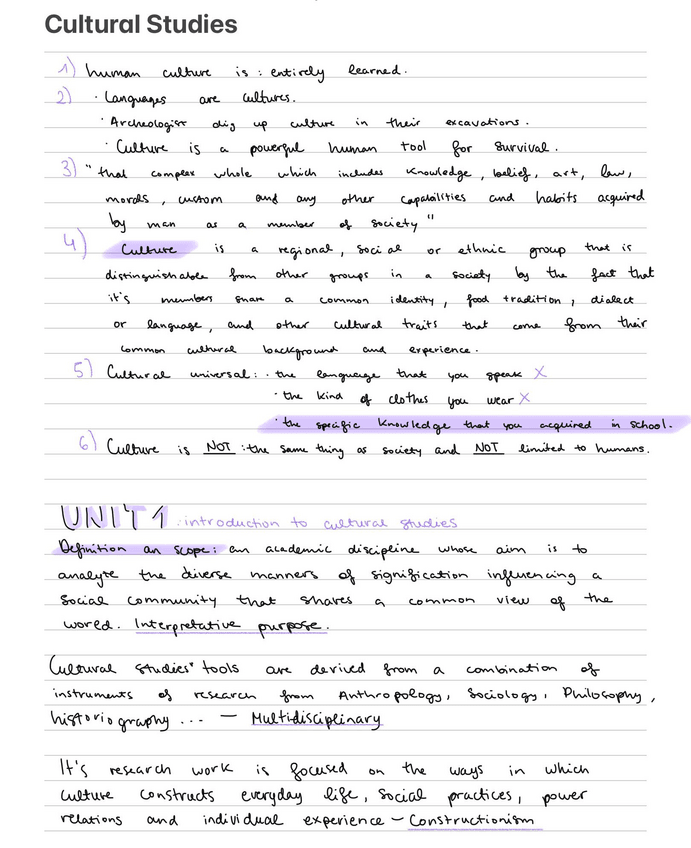 Cultural Studies
1) human culture is : entirely learned.
2) · Languages are cultures.
· Archeologist dig up culture in their excavations.
· Culture is a powerful human tool for survival.
3) "that complex whole which includes knowledge, belief, art, law,
morals, custom and any other capabilities and habits acquired
by man as a member of society"
4) Culture is a regional, social or ethnic group that is
distinguishable from other groups in a society by the fact that
it's members share a common identity, food tradition, dialect
or language, and other cultural traits that come from their
common cultural background and experience.
5) Cultural universal: · the language that you speak X
· the kind of clothes you wear X
· the specific knowledge that you acquired in school.
6) Culture is NOT : the same thing as society and NOT limited to humans.
UNIT 1 : introduction to cultural studies
Definition an scope: an academic discipline whose aim is to
analyte the diverse manners of signification influencing a
social community that shares a common view of the
world. Interpretative purpose.
Cultural studies' tools are derived from a combination of
instruments of research from Anthropology, Sociology, Philosophy,
historiography ... — Multidisciplinary
It's research work is focused on the ways in which
culture constructs everyday life, social practices, power
relations and individual experience — Constructionism